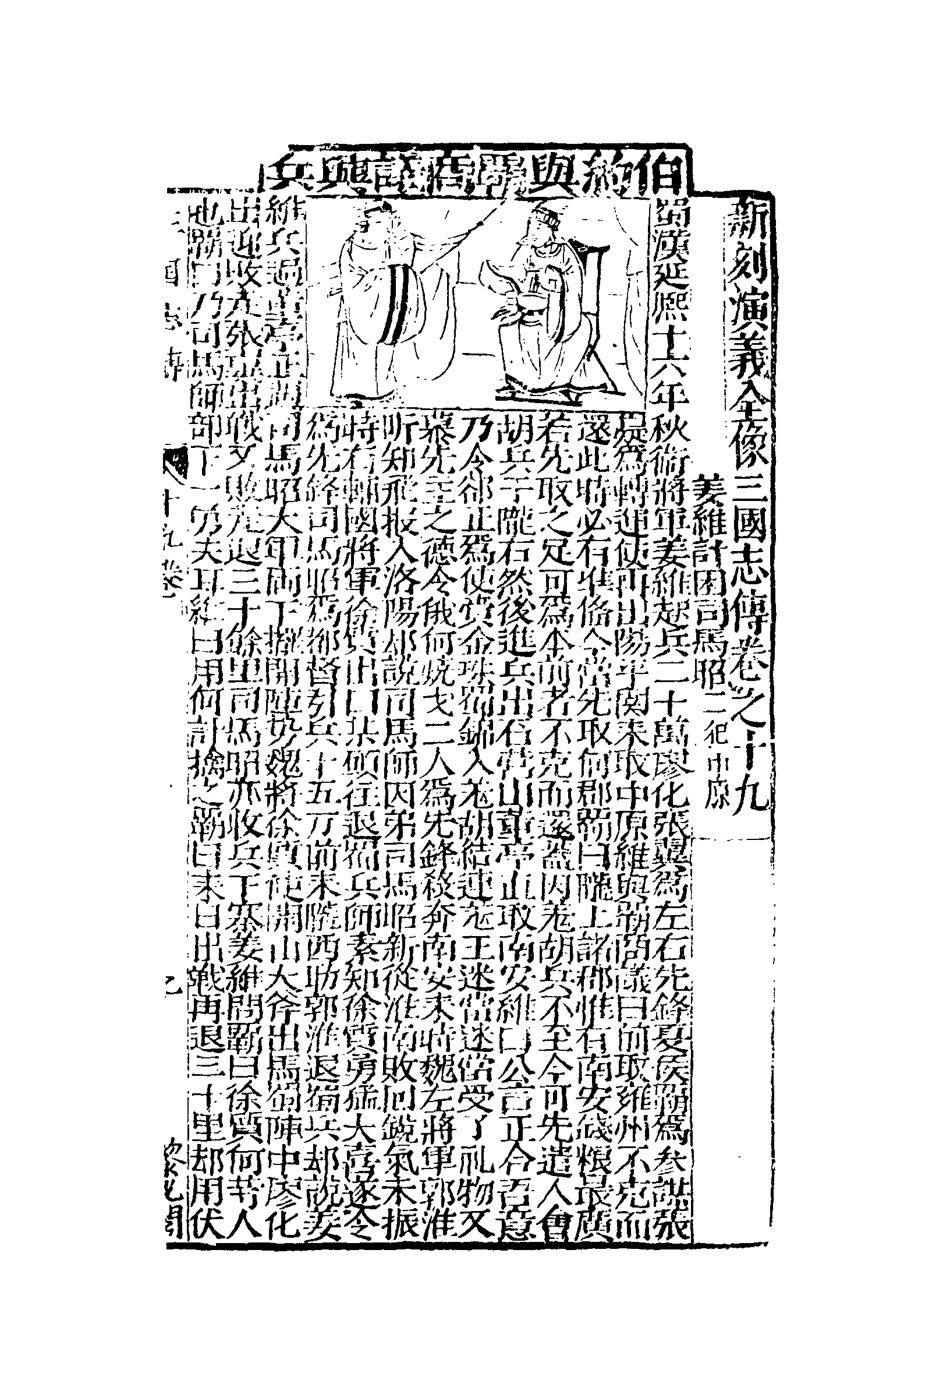 伯約與霸商議興兵
新刻演義全像三國志傳卷之十九
姜維計困司馬昭 二犯中原
蜀漢延熙十六年秋衛將軍姜維起兵二十萬廖化張翼為左右先鋒夏侯霸為參謀張
嶷為轉運使再出陽平関来取中原維與霸商議曰前取雍州不克而
還此時必有準偹今當先取何郡霸曰隴上諸郡惟有南安錢粮最廣
若先取之足可為本前者不克而還蓋因羌胡兵不至今可先遣人會
胡兵于隴右然後進兵出石營山董亭直取南安維曰公言正合吾意
乃令郤正為使賫金珠蜀錦入羌胡結連羌王迷當迷當受了礼物又
慕先主之德令俄何燒戈二人為先鋒殺奔南安来時魏左將軍郭淮
听知飛报入洛陽却說司馬師因弟司馬昭新從淮南敗囘銳氣未振
時有輔國將軍徐質出曰某願往退蜀兵師素知徐質勇猛大喜遂令
為先鋒司馬昭為都督引兵十五万前来隴西助郭淮退蜀兵却說姜
維兵過董亭正遇司馬昭大軍両下擺開陣势魏將徐質使開山大斧出馬蜀陣中廖化
出迎敗走張翼出戰又敗先退三十餘里司馬昭亦收兵下寨姜維問霸曰徐質何等人
也霸曰乃司馬師部下一勇夫耳維曰用何計擒之霸曰来日出戰再退三十里却用伏
三國志傳 十九卷 乙